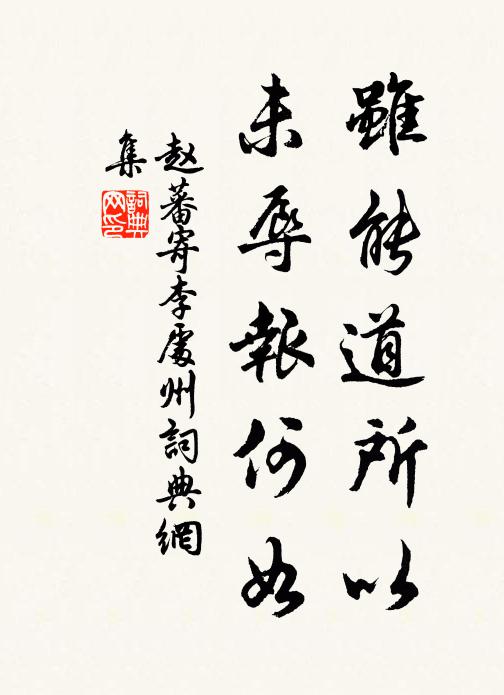 雖能道所以
未辱報何如
赵蕃寄李處州詞典網
集
詞典网印